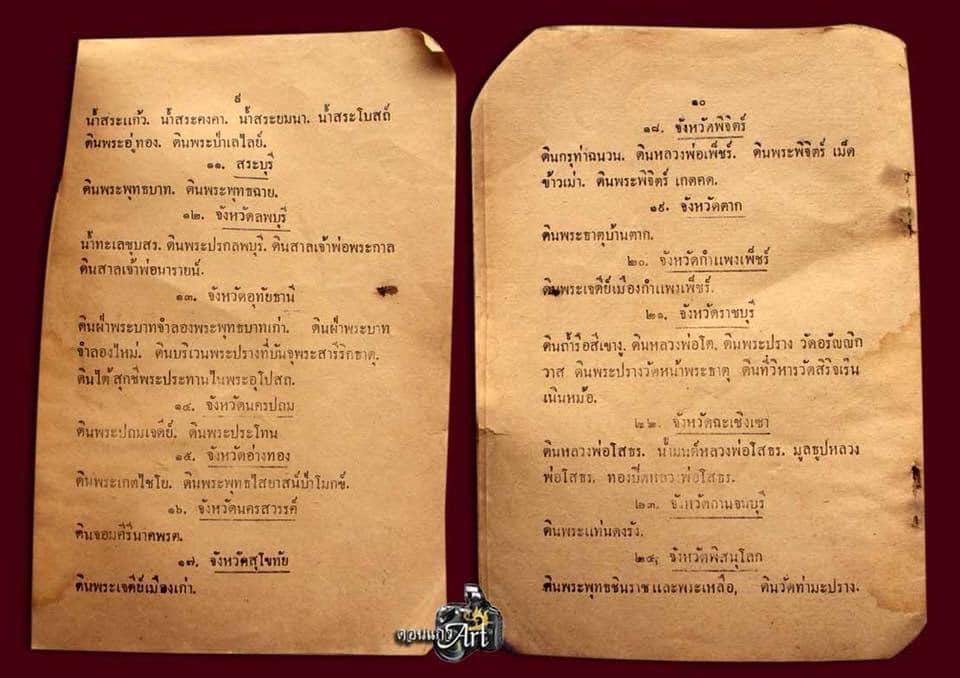 ๙
น้ำสระแก้ว. น้ำสระคงคา. น้ำสระยมนา. น้ำสระโบสถ์
ดินพระอู่ทอง. ดินพระป่าเลไลย์.
๑๑. สระบุรี
ดินพระพุทธบาท. ดินพระพุทธฉาย.
๑๒. จังหวัดลพบุรี
น้ำทะเลชุบสร. ดินพระปรกลพบุรี. ดินสาลเจ้าพ่อพระกาล
ดินสาลเจ้าพ่อนารายน์.
๑๓. จังหวัดอุทัยธานี
ดินฝ่าพระบาทจำลองพระพุทธบาทเก่า. ดินฝ่าพระบาท
จำลองใหม่. ดินบริเวนพระปรางที่บันจุพระสารีริกธาตุ.
ดินใต้สุกชีพระประทานในพระอุโปสถ.
๑๔. จังหวัดนครปถม
ดินพระปถมเจดีย์. ดินพระประโทน
๑๕. จังหวัดอ่างทอง
ดินพระเกตไชโย. ดินพระพุทธไสยาสน์ป่าโมกข์.
๑๖. จังหวัดนครสวรรค์
ดินจอมคีรีนาคพรต.
๑๗. จังหวัดสุโขทัย
ดินพระเจดีย์เมืองเก่า.
๑๐
๑๘. จังหวัดพิจิตร์
ดินกรุท่าฉนวน. ดินหลวงพ่อเพ็ชร์. ดินพระพิจิตร์ เม็ด
ข้าวเม่า. ดินพระพิจิตร์ เกตคต.
๑๙. จังหวัดตาก
ดินพระธาตุบ้านตาก.
๒๐. จังหวัดกำแพงเพ็ชร์
ดินพระเจดีย์เมืองกำแพงเพ็ชร์.
๒๑. จังหวัดราชบุรี
ดินถ้ำรือสีเขางู. ดินหลวงพ่อโต. ดินพระปราง วัดอรัญญิก
วาส ดินพระปรางวัดหน้าพระธาตุ ดินที่วิหารวัดสิริจเริน
เนินหม้อ.
๒๒. จังหวัดฉะเชิงเซา
ดินหลวงพ่อโสธร. น้ำมนต์หลวงพ่อโสธร. มูลธูปหลวง
พ่อโสธร. ทองปิดหลวงพ่อโสธร.
๒๓. จังหวัดกานจนบุรี
ดินพระแท่นดงรัง.
๒๔. จังหวัดพิสนุโลก
ดินพระพุทธชินราชและพระเหลือ, ดินวัดท่ามะปราง.
Art